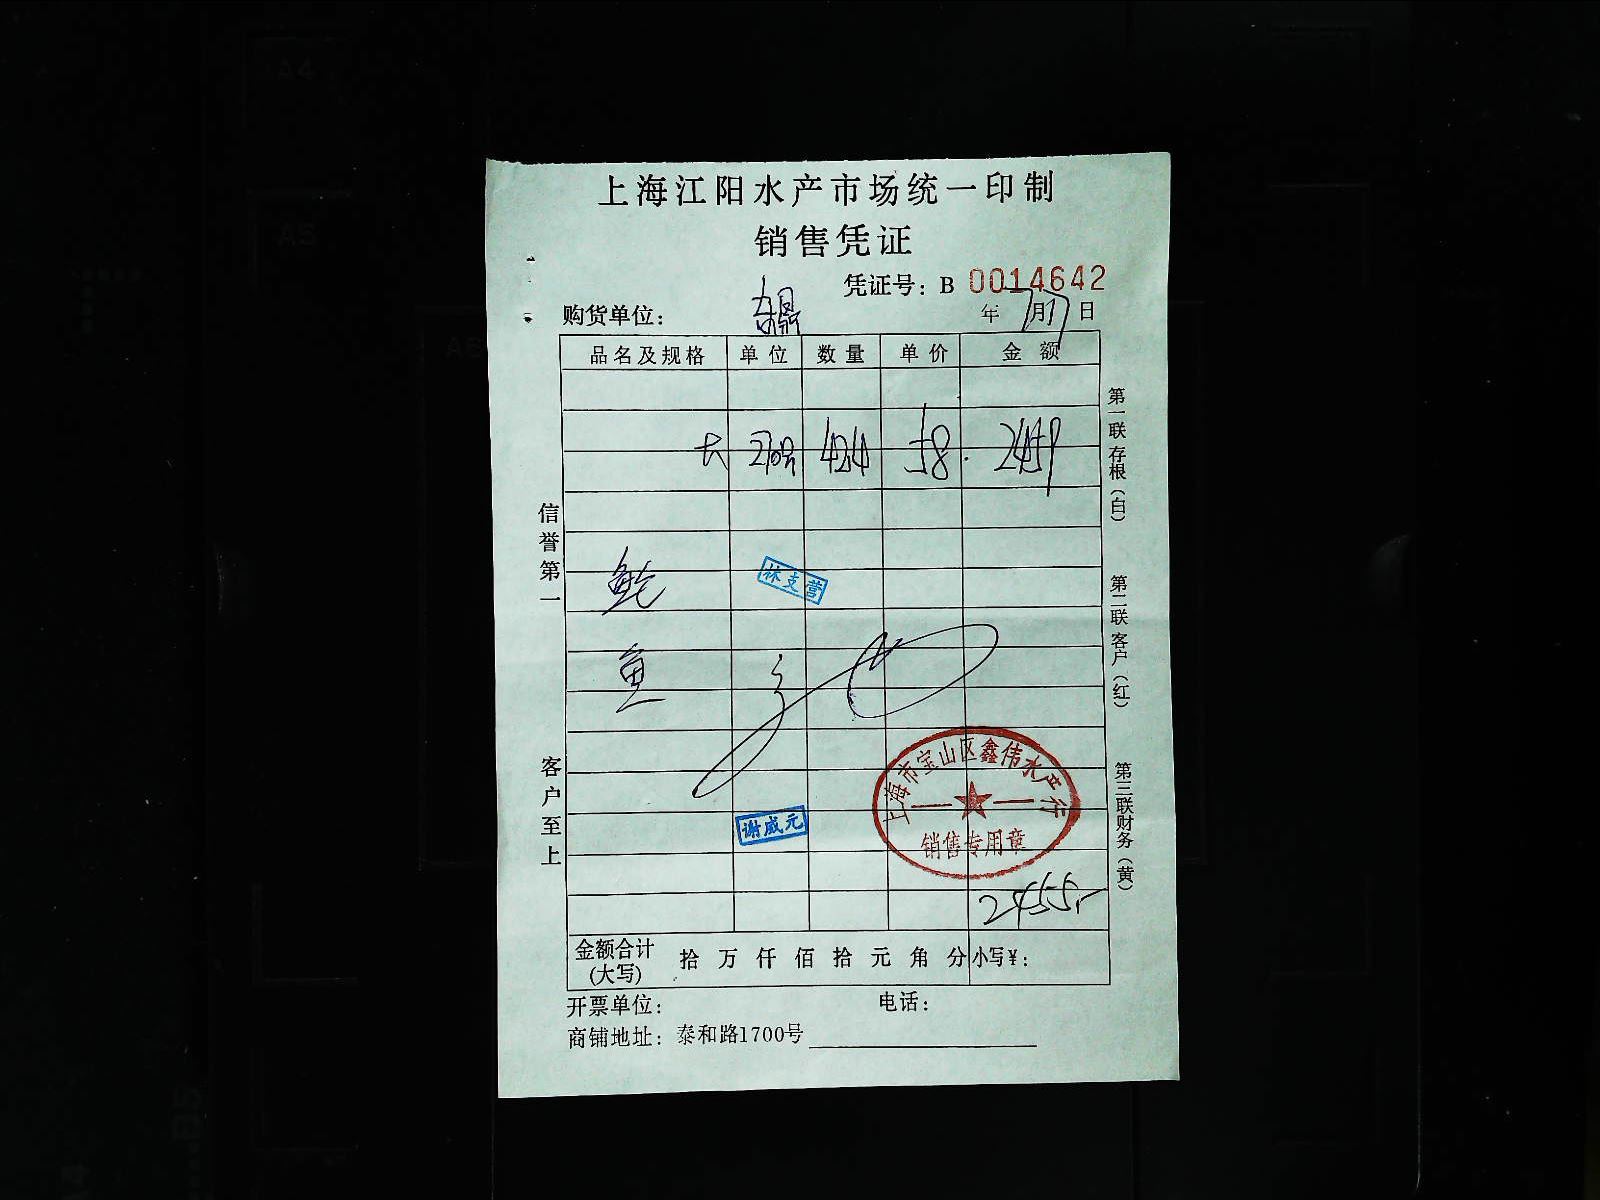 上海江阳水产市场统一印制
销售凭证
凭证号：B 0014642
购货单位：
年 7月17日
品名及规格 单位 数量 单价 金额
大 424 58. 2459
鲍
鱼
林支营
谢咸元
上海市宝山区鑫伟水产行
销售专用章
2455
金额合计(大写) 拾 万 仟 佰 拾 元 角 分 小写¥：
开票单位： 电话：
商铺地址：泰和路1700号
信誉第一 客户至上
第一联存根（白） 第二联客户（红） 第三联财务（黄）
A4
A5
A6
B5